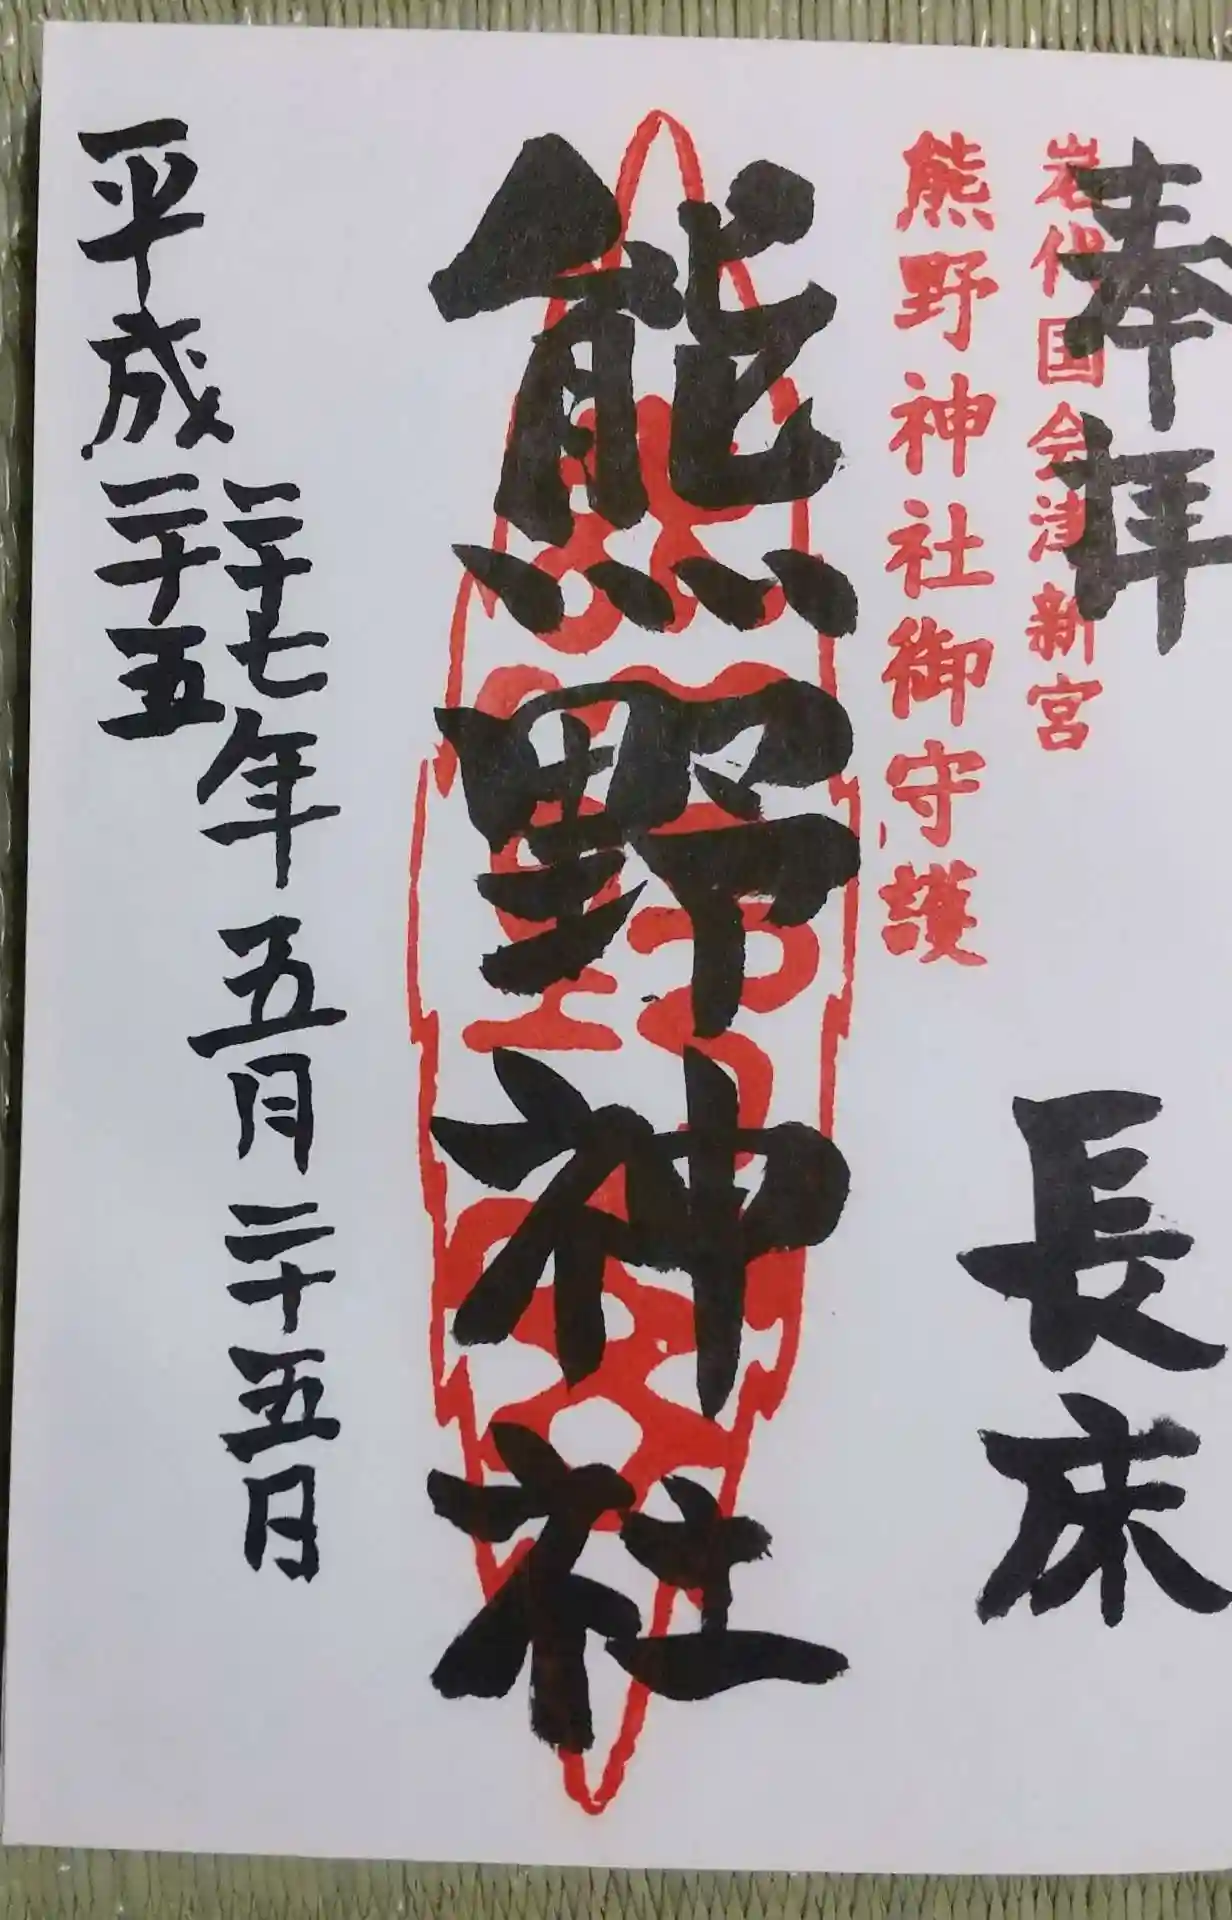 奉拝
長床
岩代国会津新宮
熊野神社御守護
熊野神社
二十七年五月二十五日
平成二十五